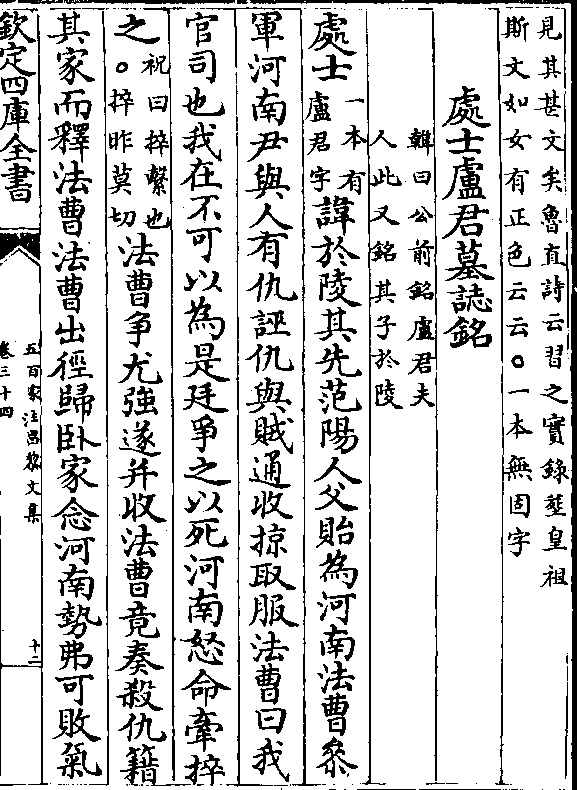 見其甚文矣魯直詩云習之實錄葬皇祖
斯文如女有正色云云○一本無固字
處士盧君墓誌銘
韓曰公前銘盧君夫
人此又銘其子於陵
處士
一本有
盧君字
諱於陵其先范陽人父貽為河南法曹叅
軍河南尹與人有仇誣仇與賊通收掠取服法曹曰我
官司也我在不可以為是廷爭之以死河南怒命牽捽
之
祝曰捽繫也
○捽昨莫切
法曹争尤強遂并收法曹竟奏殺仇籍
其家而釋法曹法曹出徑歸臥家念河南勢弗可敗氣
欽定四庫全書
五百家注昌黎文集
卷三十四
十二